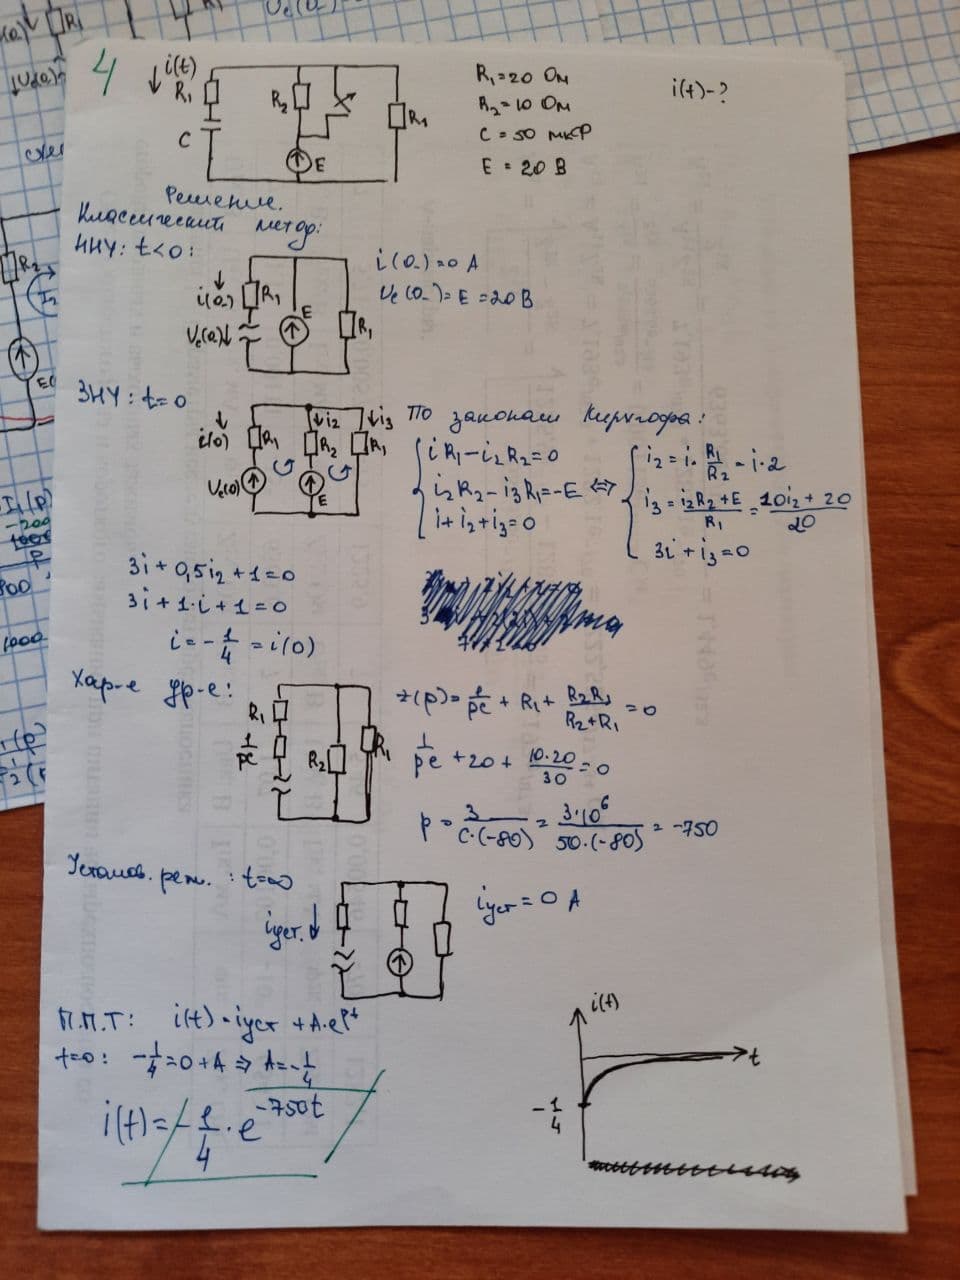 4
↓ i(t)
R₁
C
R₂
E
R₁
R₁=20 Ом
R₂=10 Ом
C = 50 мкФ
E = 20 В
i(t)-?
Решение.
Классический метод:
ННУ: t<0:
i(0₋)
R₁
Uc(0₋)↓
E
R₁
i(0₋)=0 А
Uc(0₋)=E=20В
ЗНУ: t=0
i(0)
R₁
Uc(0)
↓i₂
R₂
E
↓i₃
R₁
По законам Кирхгофа:
iR₁-i₂R₂=0
i₂R₂-i₃R₁=-E <=>
i+i₂+i₃=0
i₂=i·R₁/R₂=i·2
i₃=(i₂R₂+E)/R₁=(10i₂+20)/20
3i+i₃=0
3i+0,5i₂+1=0
3i+1·i+1=0
i=-1/4=i(0)
Хар-е ур-е:
R₁
1/pc
R₂
R₁
z(p)=1/pc+R₁+R₂R₁/(R₂+R₁)=0
1/pc+20+10·20/30=0
p=3/(C·(-80))=3·10⁶/(50·(-80))=-750
Установ. реж.: t=∞
iуст.↓
iуст=0 А
П.П.Т: i(t)=iуст+A·e^pt
t=0: -1/4=0+A => A=-1/4
i(t)=-1/4·e^-750t
i(t)
t
-1/4